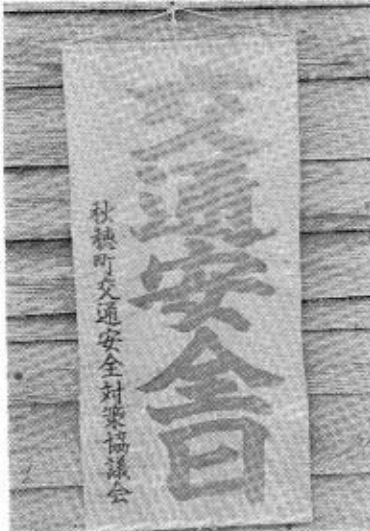 交通安全日
秋穂町交通安全対策協議会